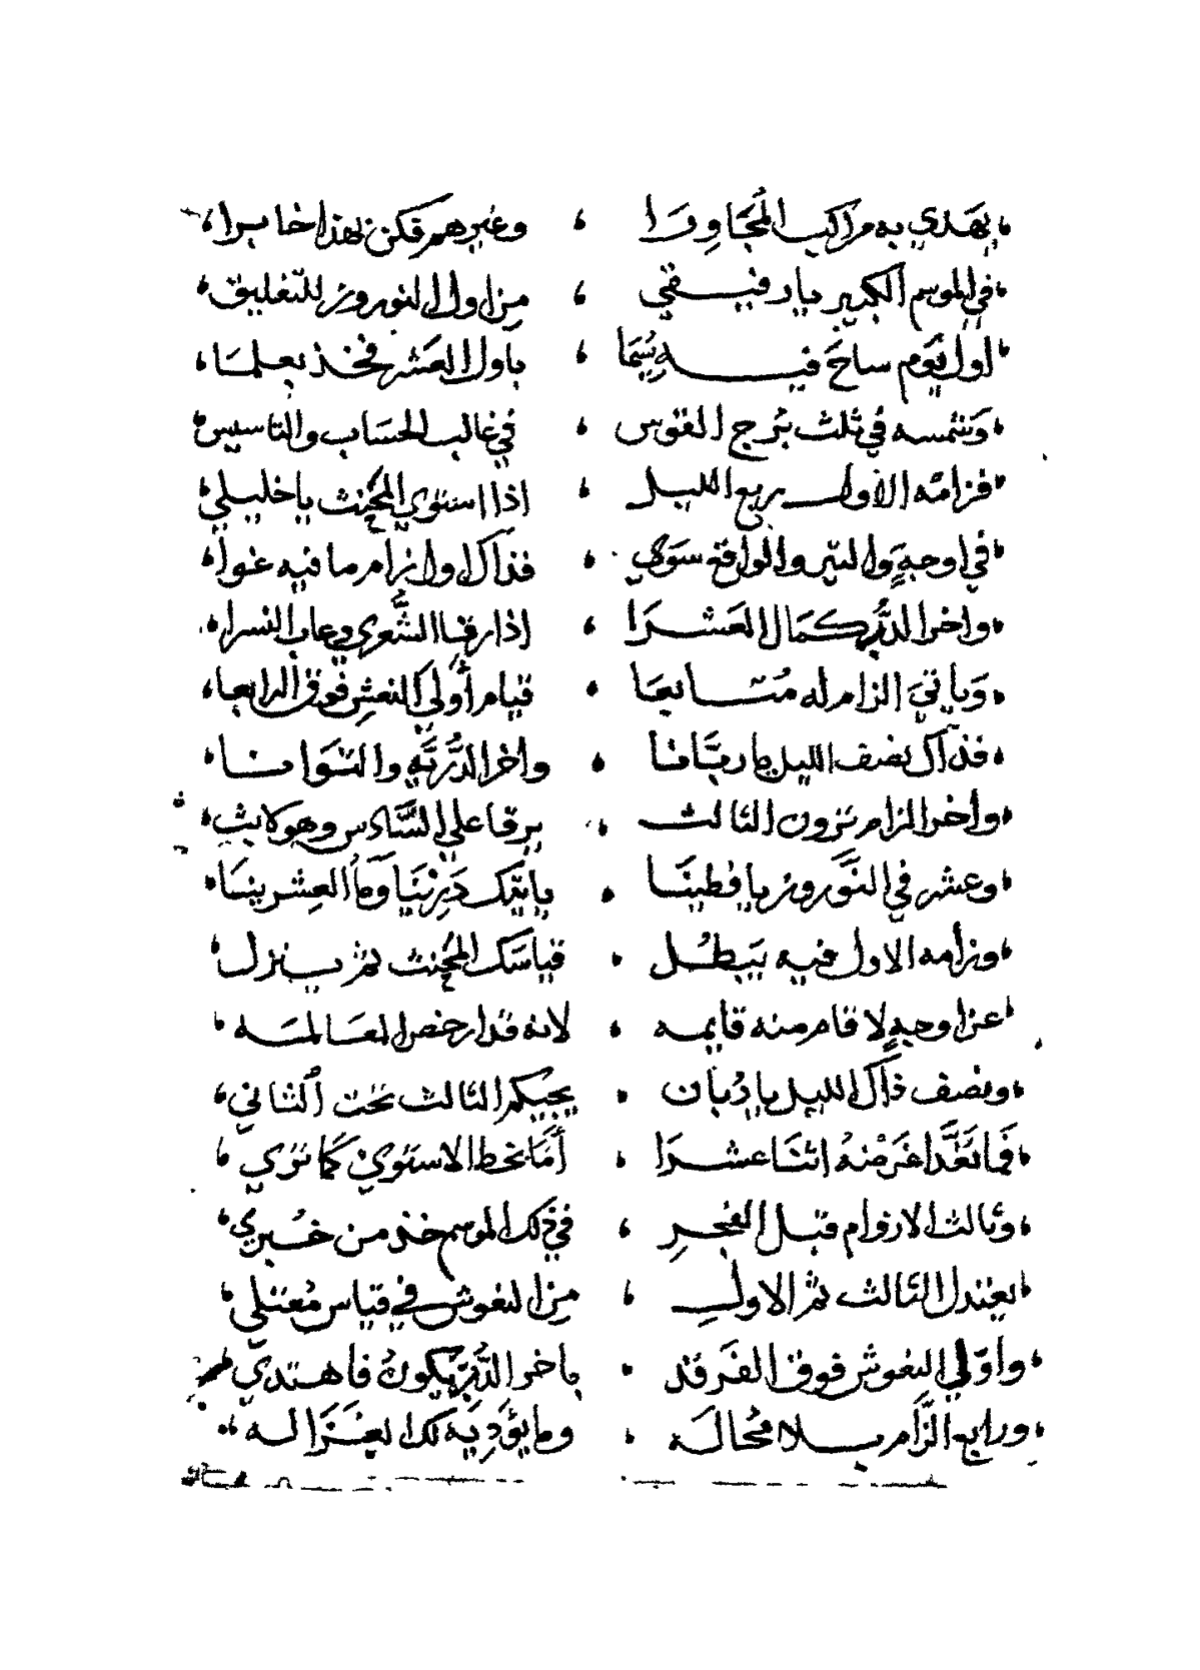 يهدي به مراكب المجاورا ، وغيرهم فكن لهذا خابرا
في الموسم الكبير يا رفيقي ، من اول النوروز للتغليق
اول يوم ساح فيه ، باول العشر فخذ بعلما
وشمسه في ثلث برج القوس ، في غالب الحساب والتاسيس
فزامه الاول ربع الليل ، اذا استوي المحنث يا خليلي
في اوجه والتير والواقع سوي ، فذاك اول زام ما فيه غوا
واخر الدر كمال العشرا ، اذا رقا الشعري وعاب النسرا
وياتي الزام له متابعا ، قيام أولي النعش فوق الرابعا
فذاك نصف الليل يا ربانا ، واخر الدرية والتوامنا
واخر الزام ترون الثالث ، يرقا علي السادس وهو كابث
وعشر في النوروز يا فطينا ، ياتيك العشرينا
وزامه الاول فيه يبطل ، قياسك المحنث ثم ينزل
عن اوجه لا قام منه قايمه ، لانه قد ارخص المعالمه
ونصف ذاك الليل يا ، يجيكم الثالث تحت الثاني
فما تغدا غرضه اثنا عشرا ، أما بخط الاستوي كما تري
وثالث الازوام قبل الفجر ، في ذلك الموسم خذ من خبري
يعتدل الثالث ثم الاول ، من النعوش في قياس معتلي
واولي النعوش فوق الفرقد ، باخر الدر يكون فاهتدي
ورابع الزام بلا محاله ، وما يؤديه لك